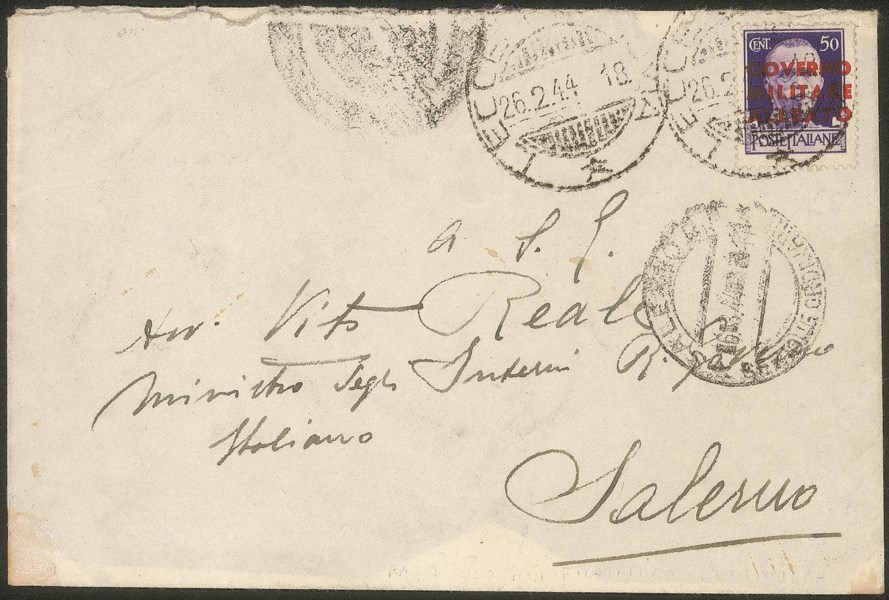 LECCE
26.2.44 18
LECCE
26.2
18
CENT. 50
GOVERNO
MILITARE
ALLEATO
POSTE ITALIANE
a S. E.
Avv. Vito Reale
Ministro degli Interni R. Governo
Italiano
Salerno
SALERNO